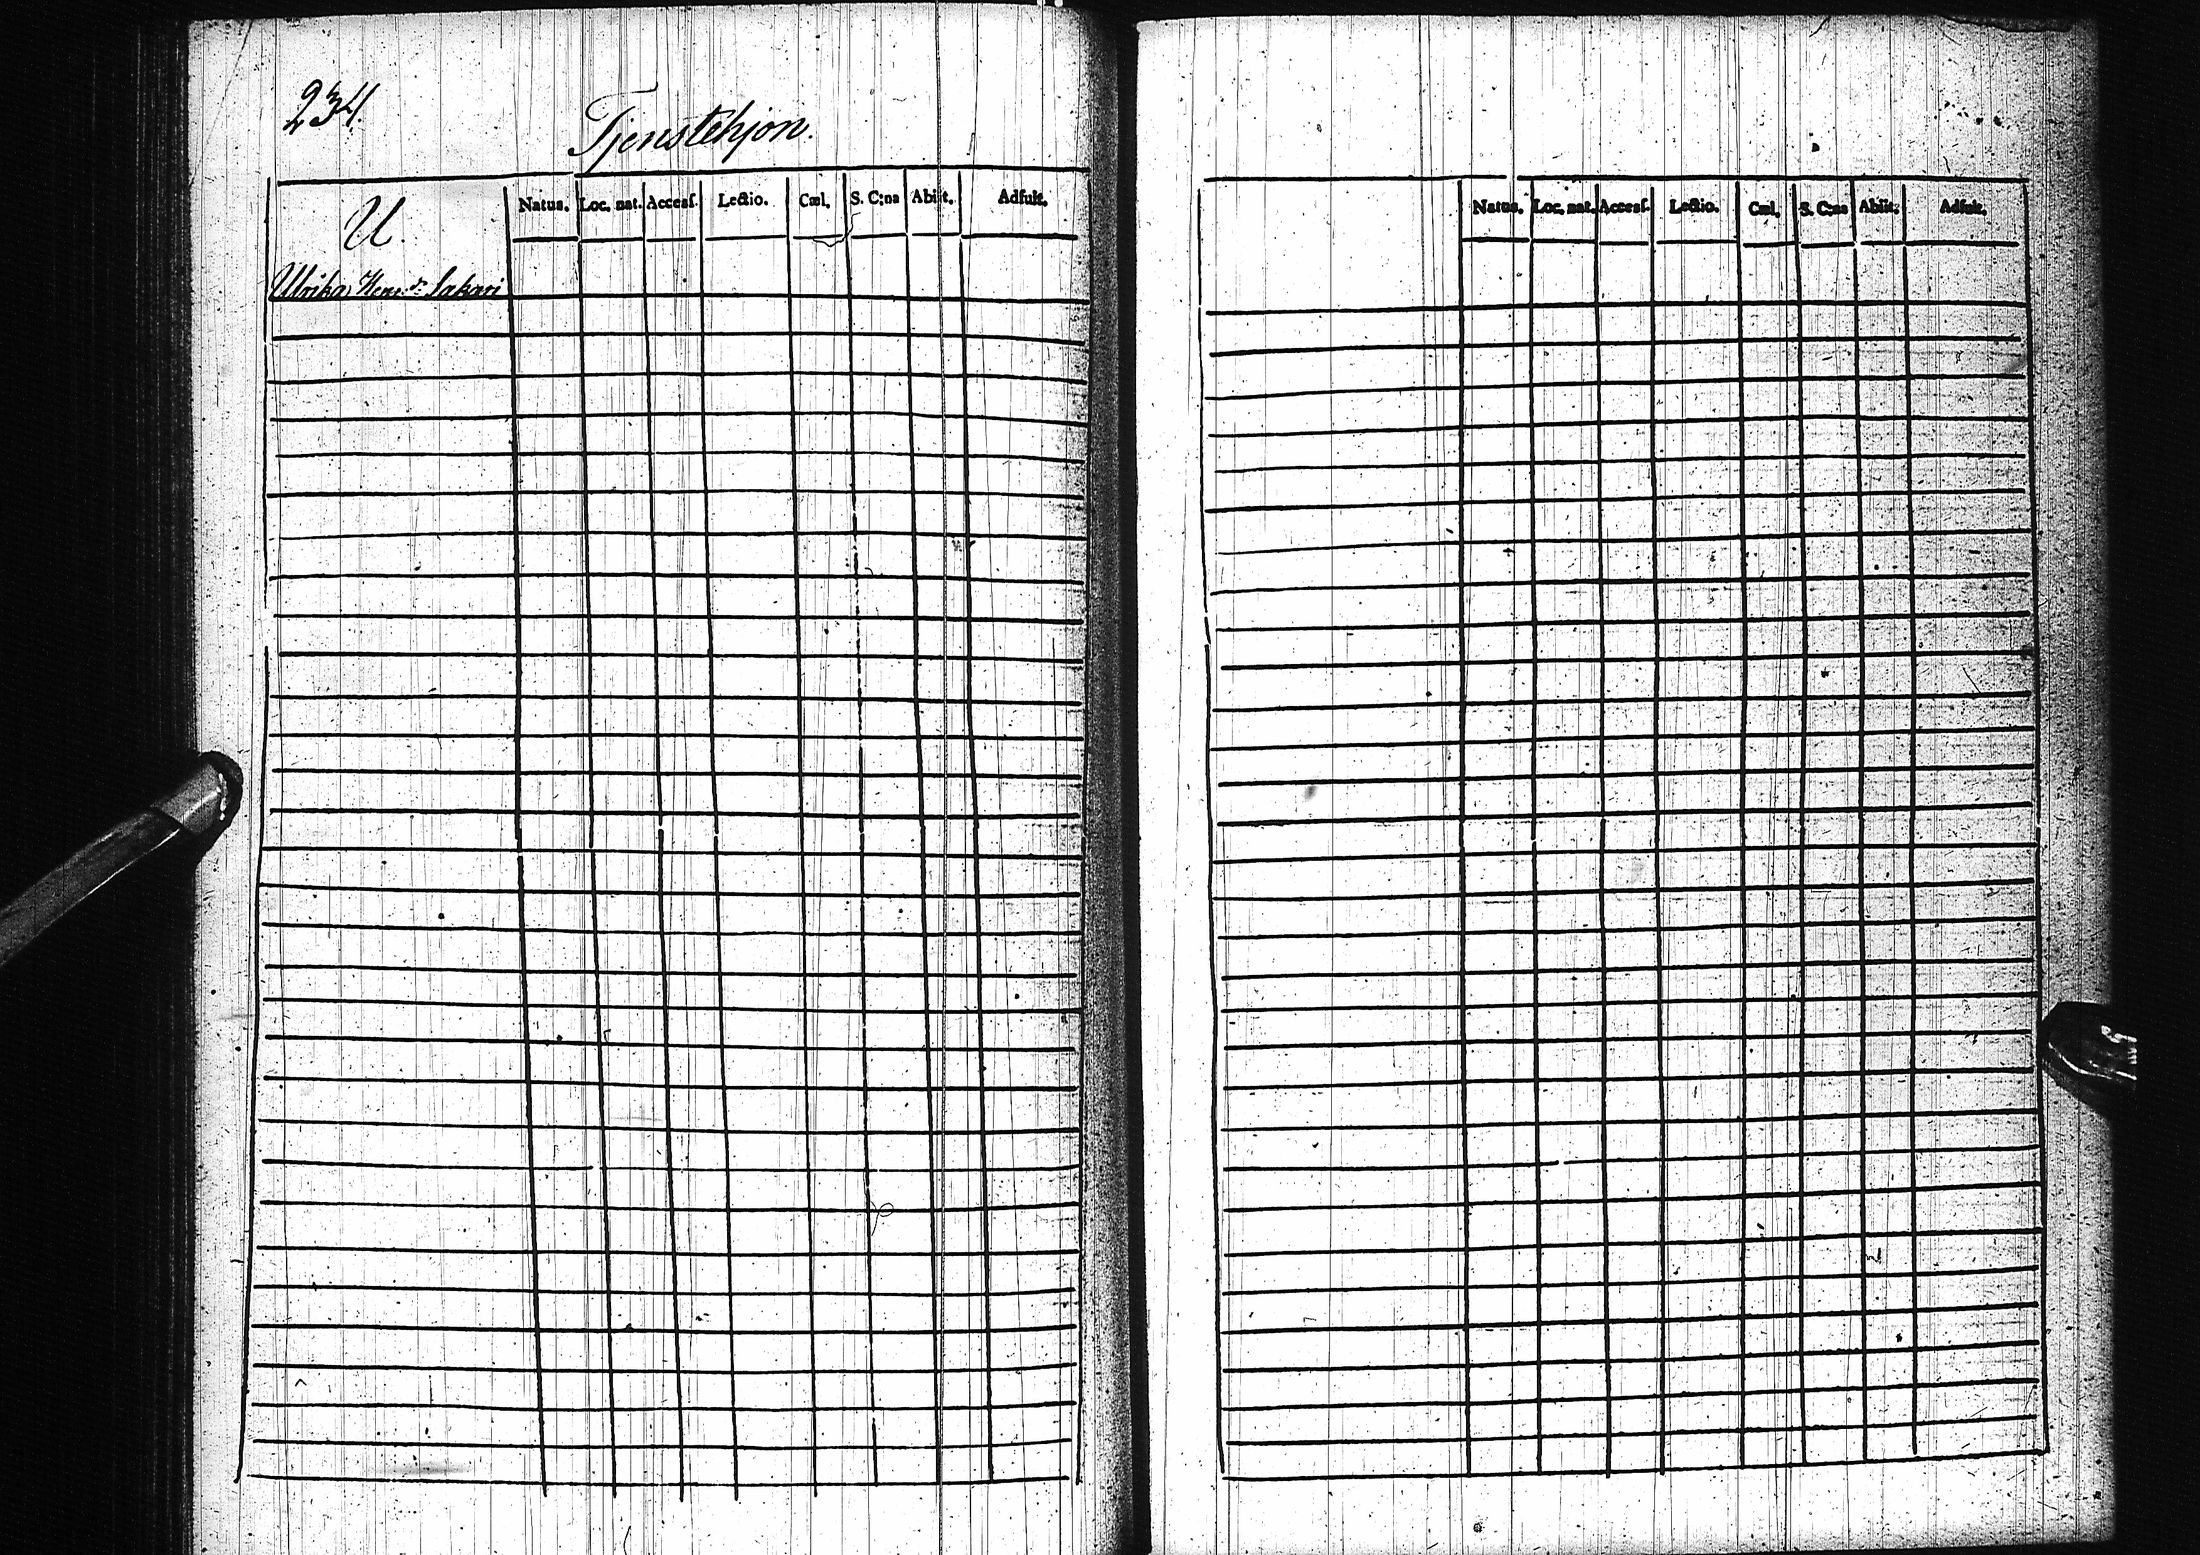 234.
Tjenstehjon.
U.
Natus. Loc. nat. Accesſ. Lectio. Cœl. S. C:na Abiit. Adfuit.
Ulrika Henr dr Sakari
Natus. Loc. nat. Accesſ. Lectio. Cœl. S. C:na Abiit. Adfuit.